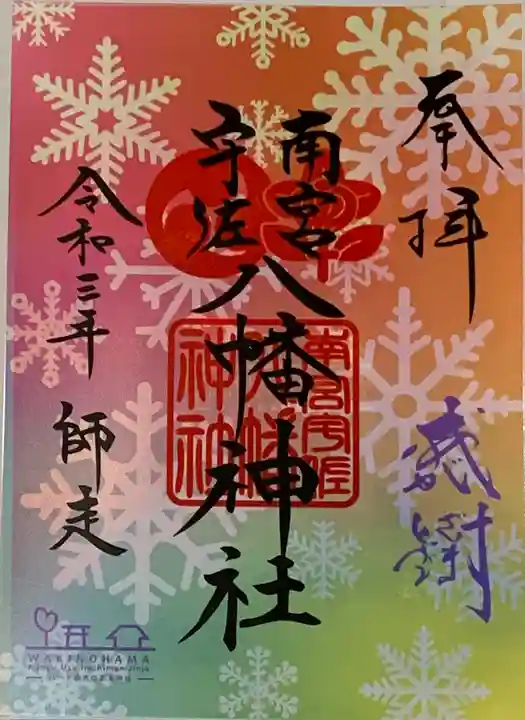 奉拝
感謝
南宮
宇佐
八幡神社
令和三年 師走
南宮宇佐
八幡
神社
WAKINOHAMA